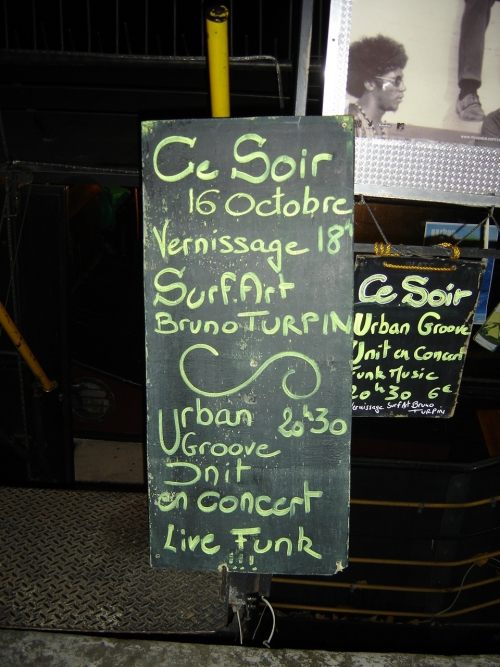 Ce Soir
16 Octobre
Vernissage 18h
Surf.Art
Bruno TURPIN
Urban 20h30
Groove
Unit
en concert
Live Funk
!!!
Ce Soir
Urban Groove
Unit en Concert
Funk Music
20h30 6€
Vernissage Surf Art Bruno
TURPIN